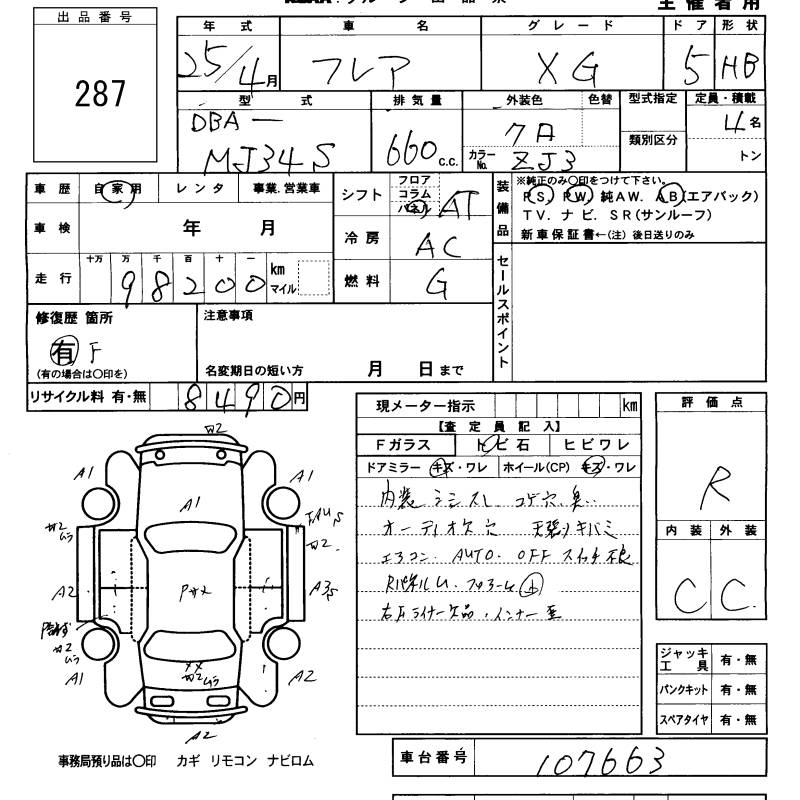 出品番号
287
主催者用
年式 車名 グレード ドア 形状
25/4月 フレア XG 5 HB
型式 排気量 外装色 色替 型式指定 定員・積載
DBA－ MJ34S 660c.c. カラーNo. ZJ3 類別区分 4名 トン
車歴 自家用 レンタ 事業.営業車
シフト フロア コラム パネル AT
装備品 ※純正のみ○印をつけて下さい。
PS. PW. 純AW. AB(エアバック)
TV. ナビ. SR(サンルーフ)
新車保証書←(注) 後日送りのみ
車検 年 月
冷房 AC
走行 十万 万 千 百 十 一
98200 km マイル
燃料 G
セールスポイント
修復歴 箇所
有 F
(有の場合は○印を)
注意事項
名変期日の短い方 月 日まで
リサイクル料 有・無 8490円
現メーター指示 km
【査定員記入】
Fガラス トビ石 ヒビワレ
ドアミラー キズ・ワレ ホイール(CP) キズ・ワレ
内装 コゲ穴 臭
オーディオ欠穴 天張リキバミ
エアコン AUTO. OFF スイッチ不良
評価点
R
内装 外装
C C
A1 A1 A1 A2 A1 A2 A2
ジャッキ 工具 有・無
パンクキット 有・無
スペアタイヤ 有・無
事務局預り品は○印 カギ リモコン ナビロム
車台番号 107663